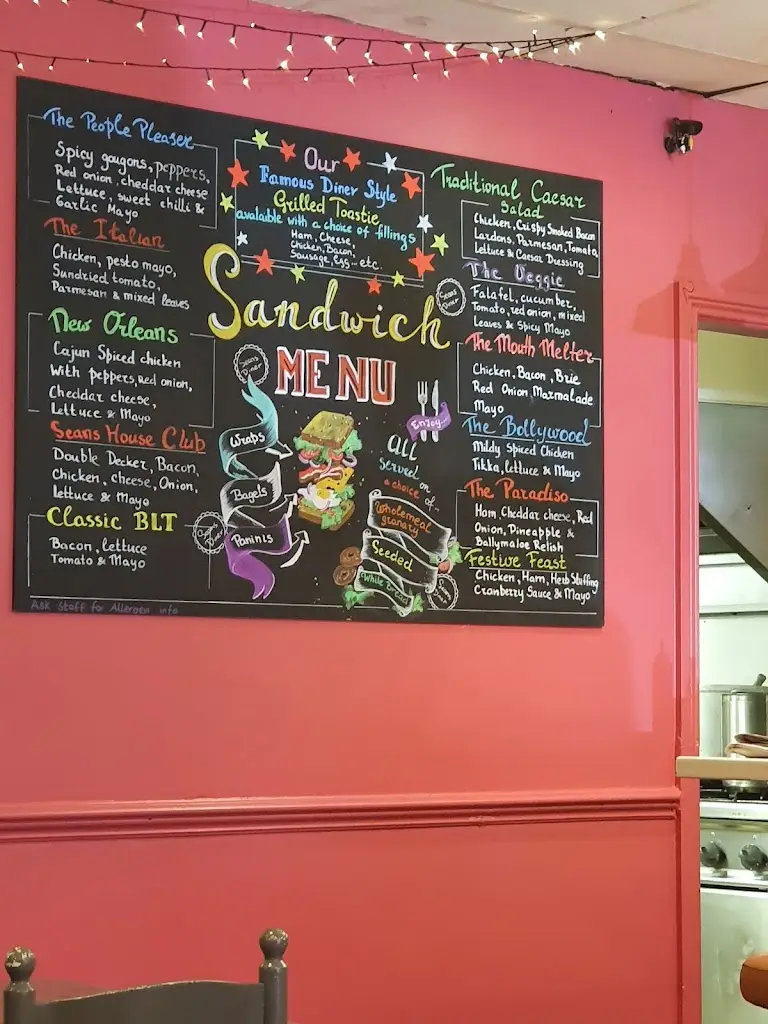 The People Pleaser
Spicy gougons, peppers,
Red onion, cheddar cheese
Lettuce, sweet chilli &
Garlic Mayo
The Italian
Chicken, pesto mayo,
Sundried tomato,
Parmesan & mixed leaves
New Orleans
Cajun Spiced chicken
with peppers, red onion,
Cheddar cheese,
Lettuce & Mayo
Seans House Club
Double Decker, Bacon,
Chicken, cheese, Onion,
lettuce & Mayo
Classic BLT
Bacon, lettuce
Tomato & Mayo
Ask Staff for Allergen info
Our
Famous Diner Style
Grilled Toastie
avalaible with a choice of fillings
Ham, Cheese,
Chicken, Bacon,
Sausage, Egg... etc.
Sandwich
MENU
Seans
Diner
Wraps
Bagels
Paninis
Enjoy...
All
served on
a choice of...
Wholemeal
granary
Seeded
White Bread
Traditional Caesar
Salad
Chicken, Crispy Smoked Bacon
Lardons, Parmesan, Tomato,
Lettuce & Caesar Dressing
Seans
Diner
The Veggie
Falafel, cucumber,
Tomato, red onion, mixed
Leaves & Spicy Mayo
The Mouth Melter
Chicken, Bacon, Brie
Red Onion Marmalade
Mayo
The Bollywood
Mildy Spiced Chicken
Tikka, lettuce & Mayo
The Paradiso
Ham, Cheddar cheese, Red
Onion, Pineapple &
Ballymaloe Relish
Festive Feast
Chicken, Ham, Herb Stuffing
Cranberry Sauce & Mayo